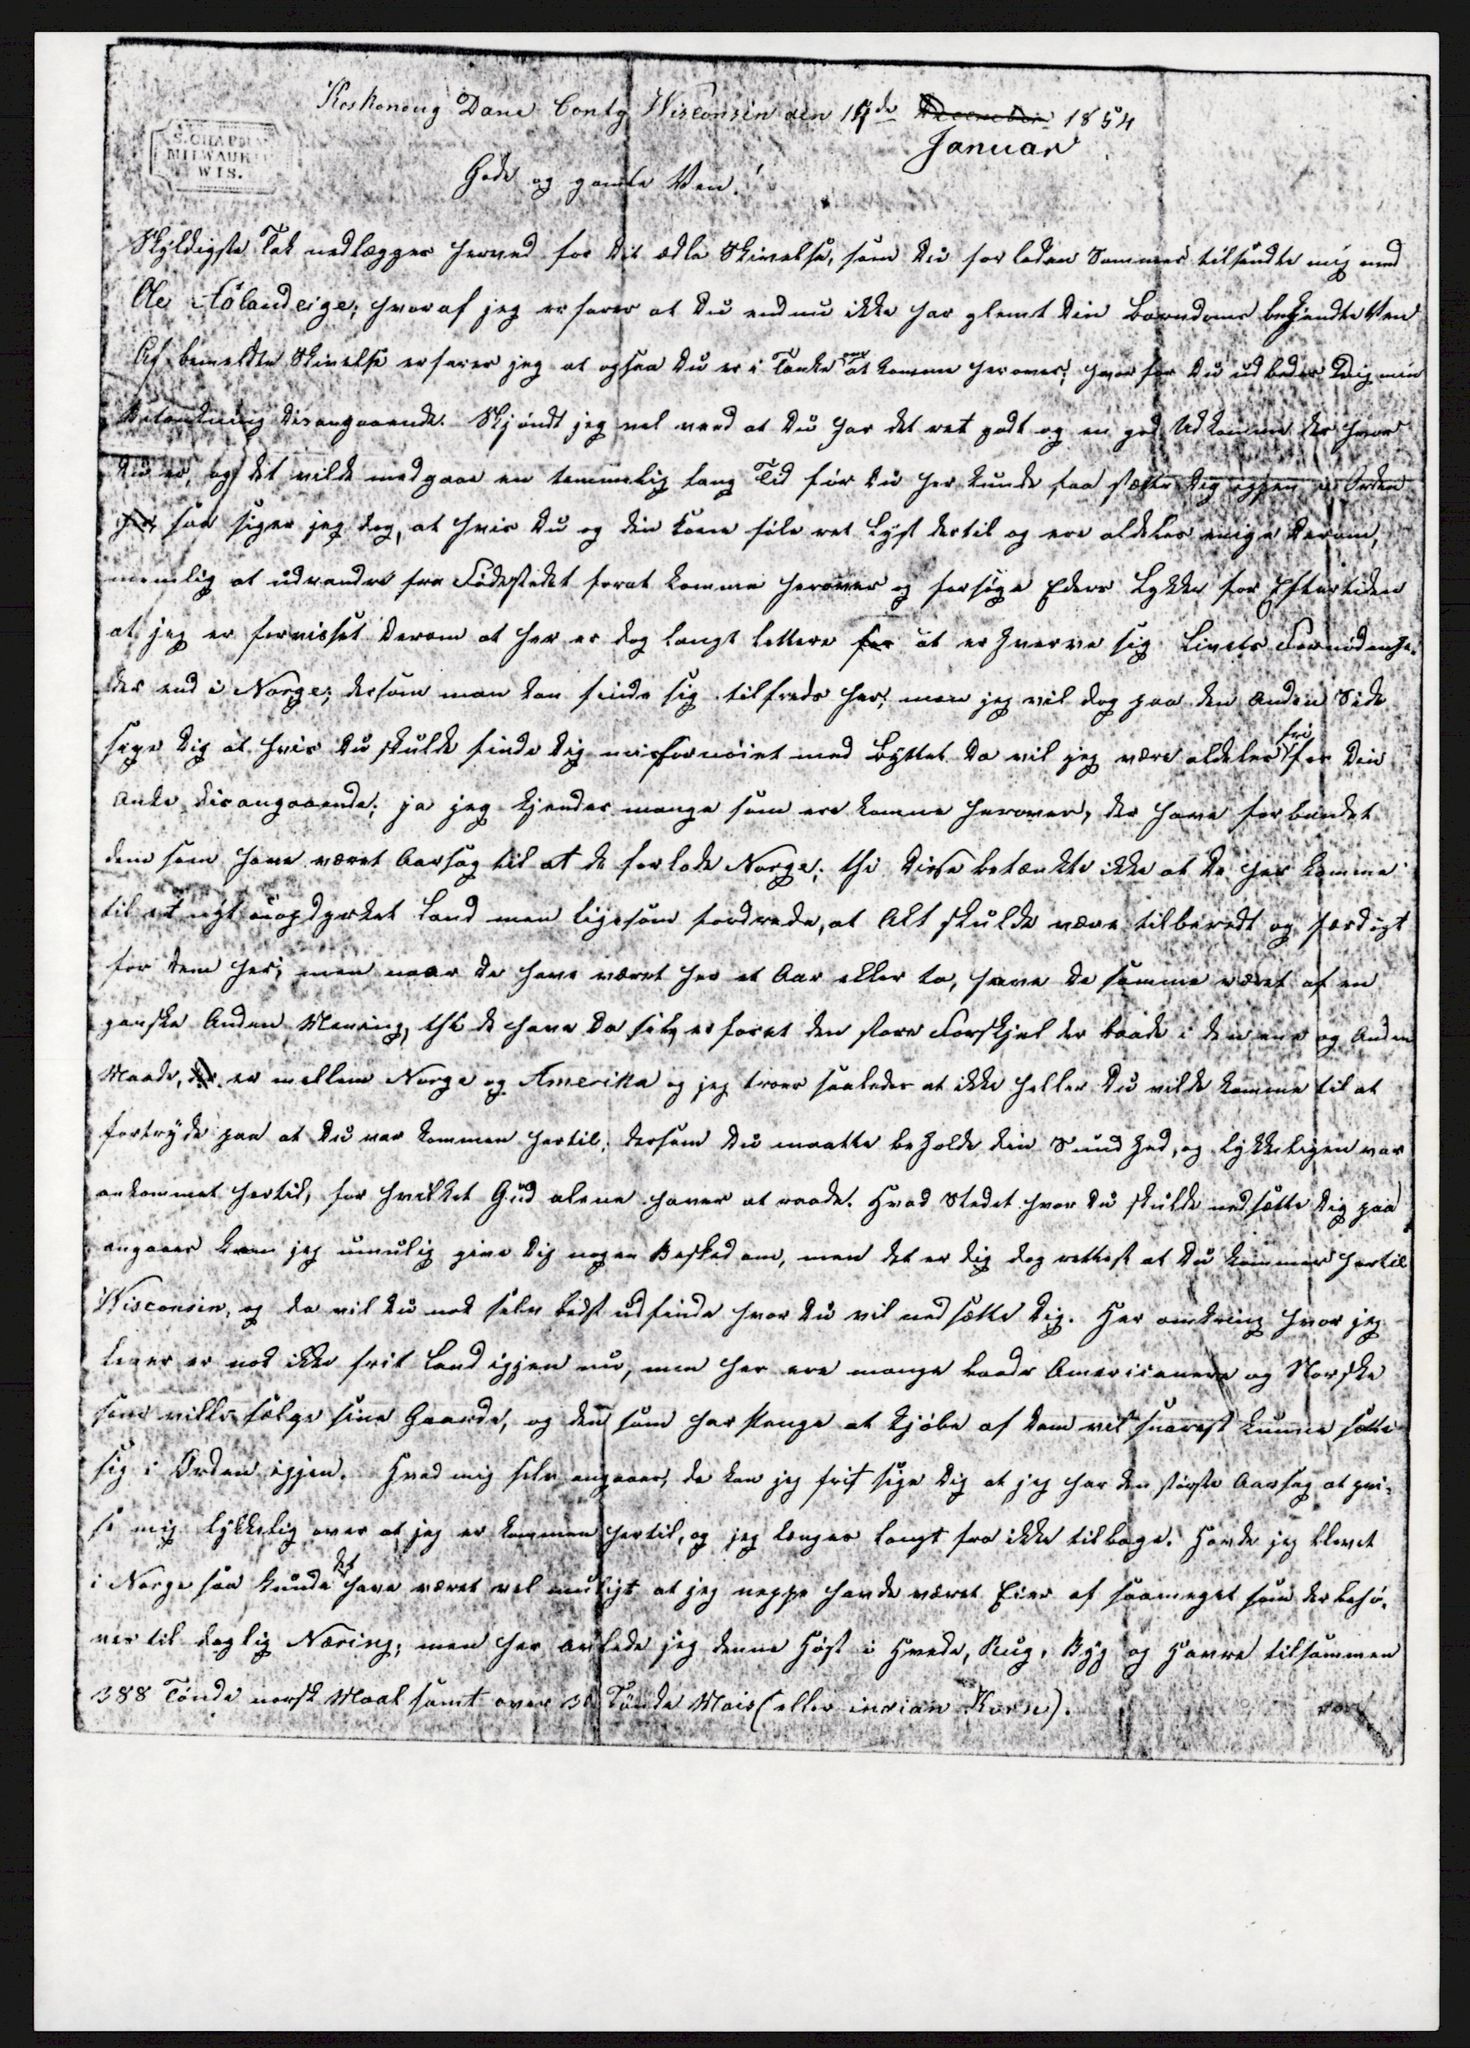 Koskonong Dane Conty Wisconsin den 17de December 1854
Januar
S. CHAPMAN
MILWAUKIE
WIS.
Gode og gamle Ven!
Skyldigste Tak nedlægges herved for dit ædle Skrivelse, som Du forleden Sommer tilsendte mig med
Ole Aaslandeige; hvoraf jeg erfarer at Du endnu ikke har glemt din Barndoms bekjendte Ven
Af bemeldte Skrivelse erfarer jeg at ogsaa Du er i Tanke om at komme herover; hvorfor Du udbeder Dig min
Betænkning desangaaende. Skjøndt jeg vel veed at Du har det ret godt og en god Udkomme der hvor
Du er, og det vilde medgaae en temmelig lang Tid før Du her kunde faa sætte Dig igjen i Orden
her, saa siger jeg dog, at hvis Du og din Kone føle ret Lyst dertil og ere aldeles enige Derom,
nemlig at udvandre fra Fødestedet forat komme herover og forsøge Eders Lykke for Eftertiden
at jeg er forvisset Derom at her er dog langt lettere for at erhverve sig Livets Fornødenhe-
der end i Norge; dersom man kan finde sig tilfreds her; men jeg vil dog paa den Anden Side
sige Dig at hvis Du skulde finde Dig misfornøiet med Byttet Da vil jeg være aldeles fri for Din
Anke desangaaende; ja jeg kjender mange som ere komne herover, der have forbandet
dem som have været Aarsag til at de forlode Norge; thi Disse betænkte ikke at De her komme
til et nyt uopdyrket Land men ligesom fordrede, at Alt skulde være tilberedt og færdigt
for dem her; men naar De have været her et Aar eller to, have De samme været af en
ganske Anden Mening, thi de have Da selv erfaret den store Forskjel der baade i den ene og Anden
Maade, der er mellem Norge og Amerika og jeg troer saaledes at ikke heller Du vilde komme til at
fortryde paa at Du var kommen hertil; dersom Du maatte beholde din Sundhed, og lykkeligen var
ankommet hertil, for hvilket Gud alene haver at raade. Hvad Stedet hvor Du skulde nedsætte Dig paa
angaaer kan jeg umulig give Dig nogen Besked om, men det er dig dog rettest at Du kommer hertil
Wisconsin, og da vil Du nok selv bedst udfinde hvor Du vil nedsætte Dig. Her omkring hvor jeg
lever er nok ikke frit Land igjen nu, men her ere mange baade Americanere og Norske
som ville sælge sine Gaarde, og den som har Penge at kjøbe af dem vil snarest kunne sætte
sig i Orden igjen. Hvad mig selv angaaer, da kan jeg frit sige Dig at jeg har den største Aarsag at pri-
se mig lykkelig over at jeg er kommen hertil, og jeg længes langt fra ikke tilbage. Havde jeg blevet
i Norge saa kunde det have været vel muligt at jeg neppe havde været Eier af saameget som der behø-
ves til daglig Næring; men her avlede jeg denne Høst i Hvede, Rug, Byg og Havre tilsammen
388 Tønde norsk Maal samt over 30 Tønde Mais (eller indian Korn).